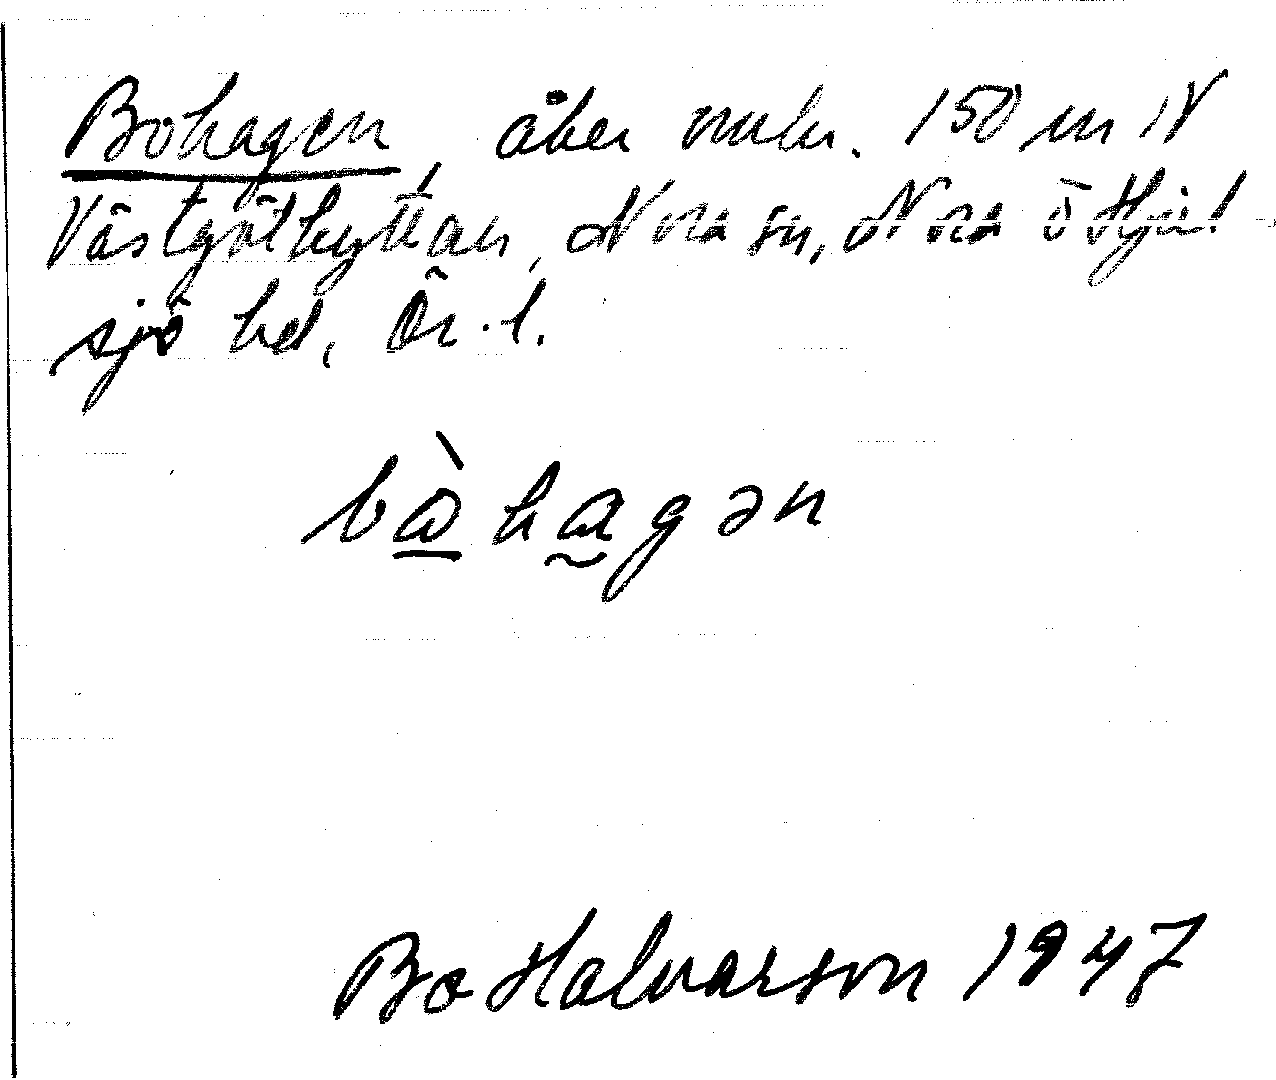 Bohagen, åker mbr. 150 m N
Västgöthyttan, Nora sn, Nora o Hjul-
sjö bd, Ör. l.
bòhagən
Bo Halvarson 1947